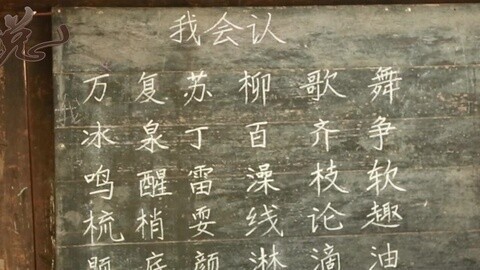 我会认
万复苏柳歌舞
冰泉丁百齐争
鸣醒雷澡枝软
梳梢耍线论趣
题底颜淋滴油